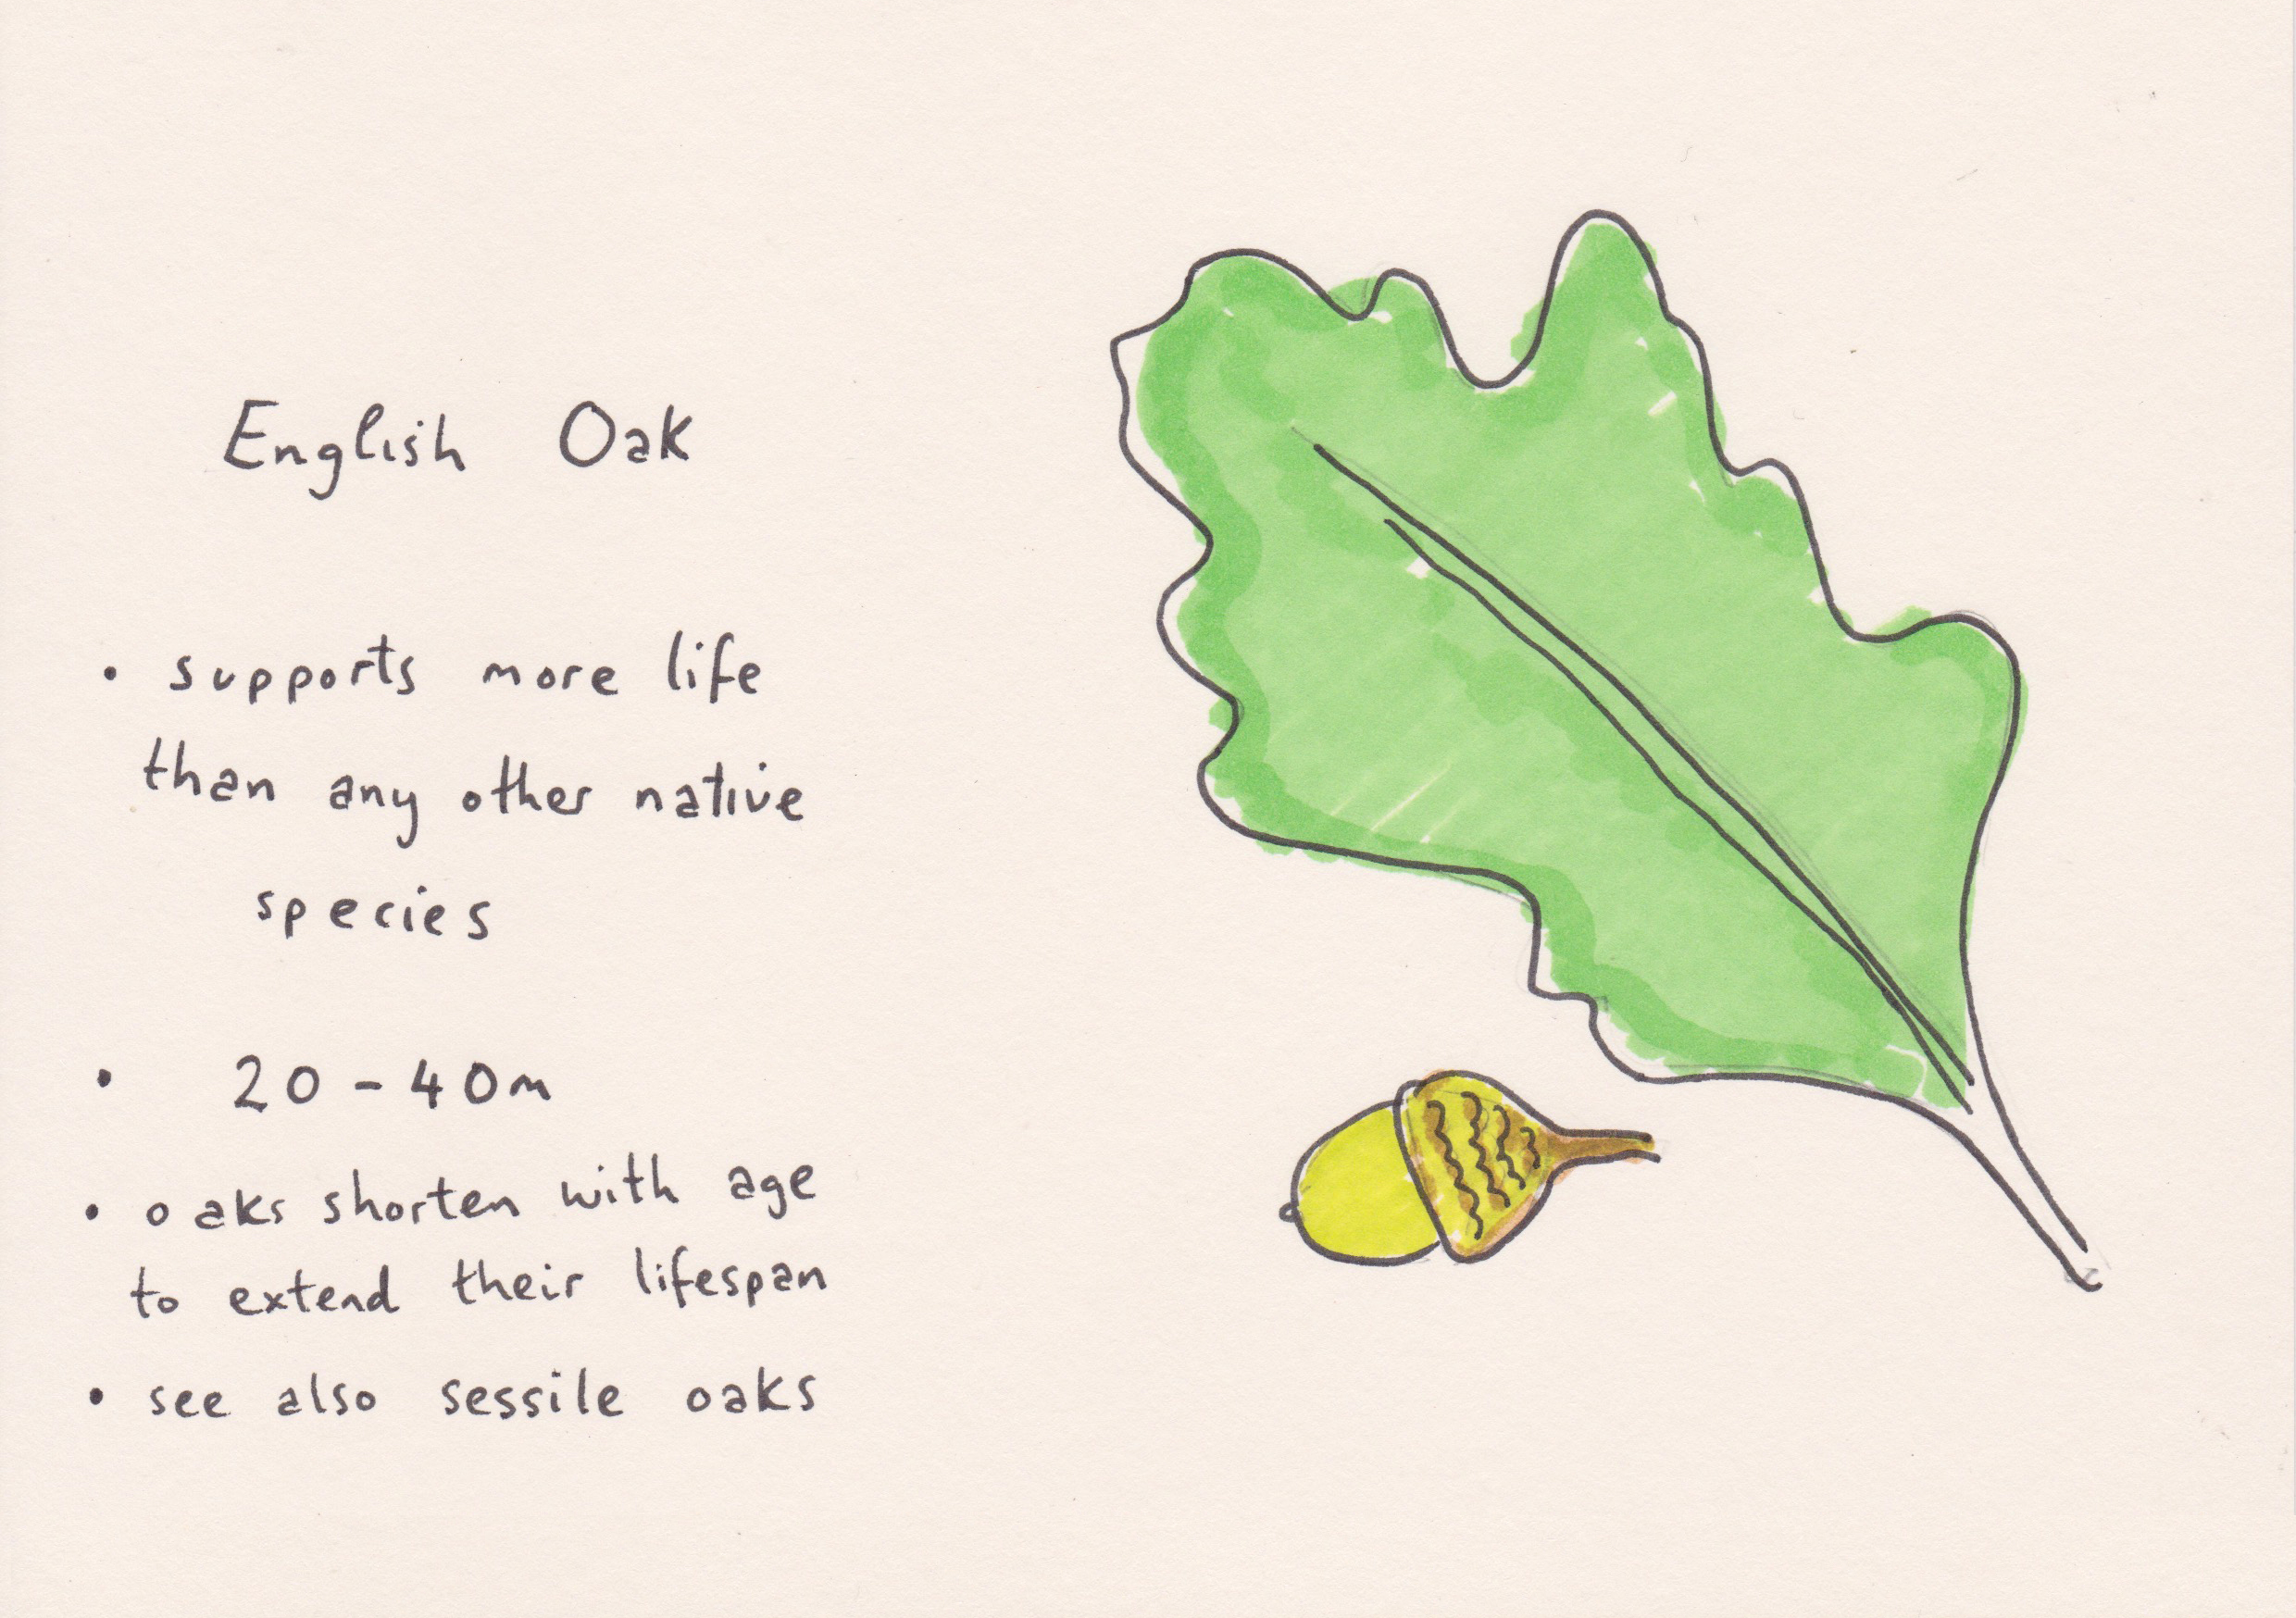 English Oak
• supports more life
than any other native
species
• 20-40m
• oaks shorten with age
to extend their lifespan
• see also sessile oaks